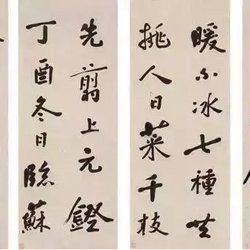 暖不冰七種共
挑人日菜千枝
先翦上元鐙
丁酉冬日臨蘇